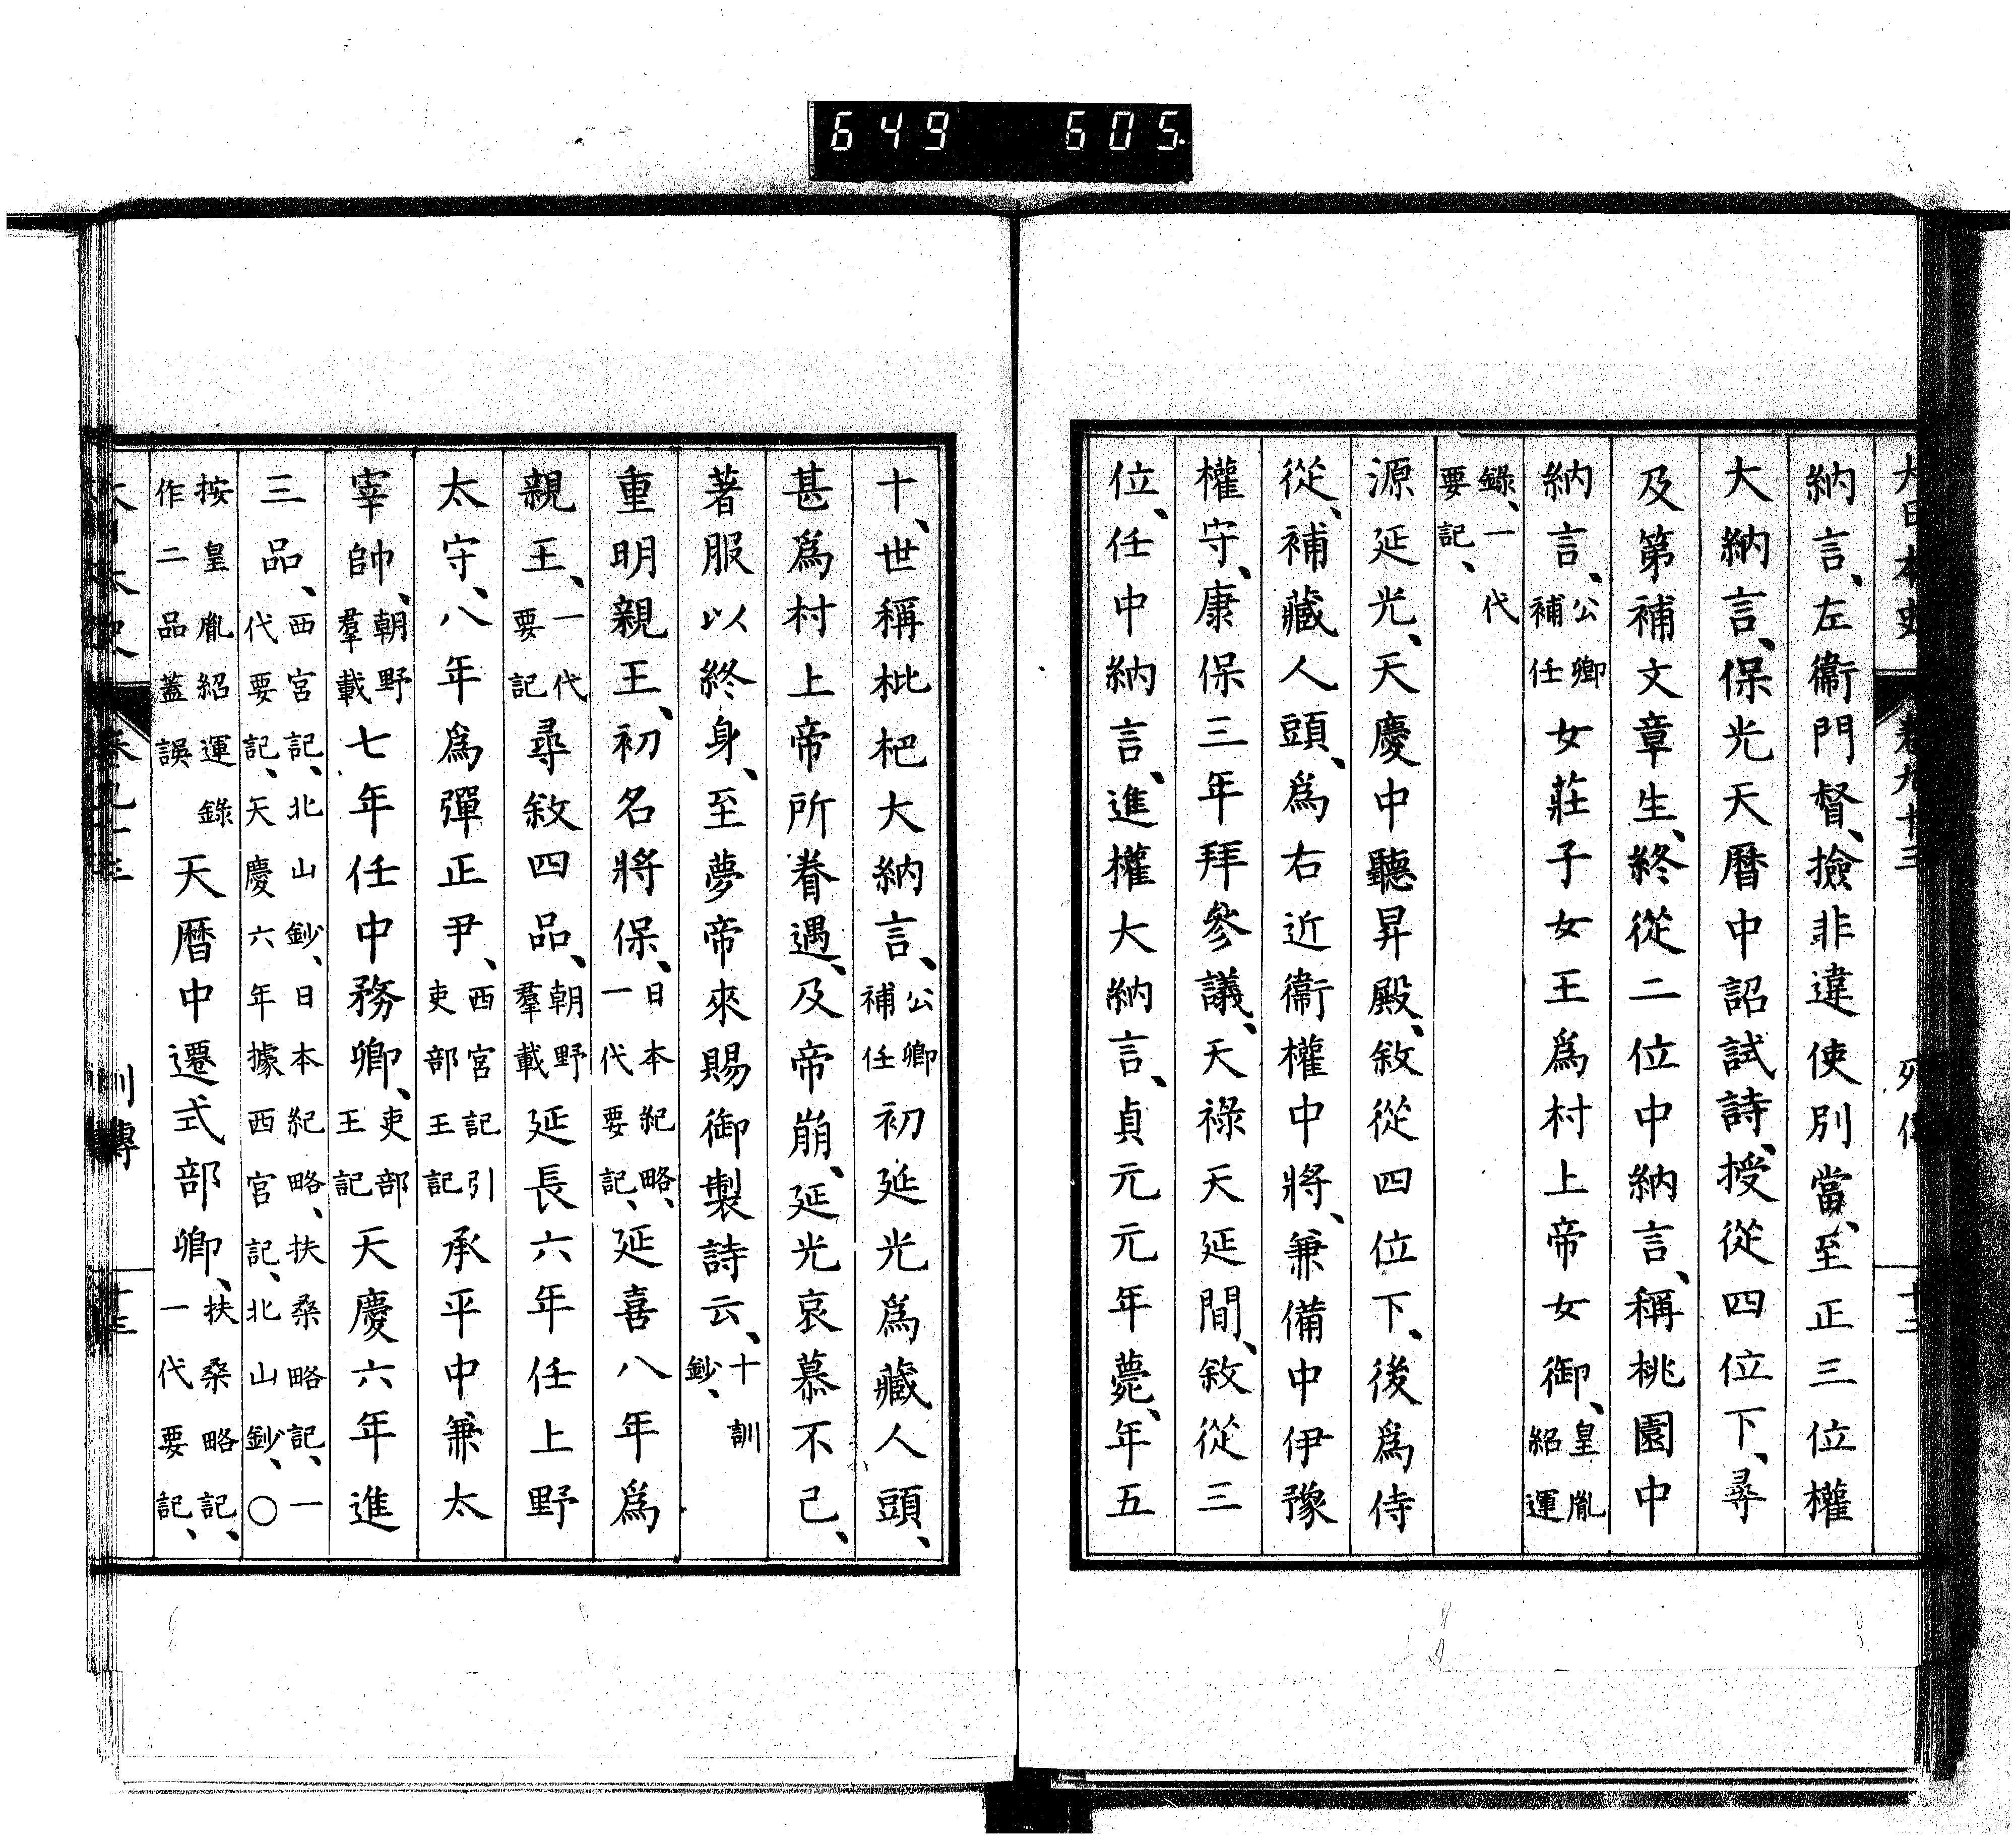 649 605.
大日本史 卷九十三 列傳 十二
納言、左衞門督、撿非違使別當、至正三位權
大納言、保光天曆中詔試詩、授從四位下、尋
及第補文章生、終從二位中納言、稱桃園中
納言、公卿補任女莊子女王爲村上帝女御、皇胤紹運
錄、一代要記、
源延光、天慶中聽昇殿、敘從四位下、後爲侍
從、補藏人頭、爲右近衞權中將、兼備中伊豫
權守、康保三年拜參議、天祿天延間、敘從三
位、任中納言、進權大納言、貞元元年薨、年五
十、世稱枇杷大納言、公卿補任初延光爲藏人頭、
甚爲村上帝所眷遇、及帝崩、延光哀慕不已、
著服以終身、至夢帝來賜御製詩云、十訓鈔、
重明親王、初名將保、日本紀略、一代要記、延喜八年爲
親王、一代要記尋敘四品、朝野羣載延長六年任上野
太守、八年爲彈正尹、西宮記引吏部王記承平中兼太
宰帥、朝野羣載七年任中務卿、吏部王記天慶六年進
三品、西宮記、北山鈔、日本紀略、扶桑略記、一代要記、天慶六年據西宮記、北山鈔、○
按皇胤紹運錄作二品蓋誤天曆中遷式部卿、扶桑略記、一代要記、
大日本史 卷九十三 列傳 十三